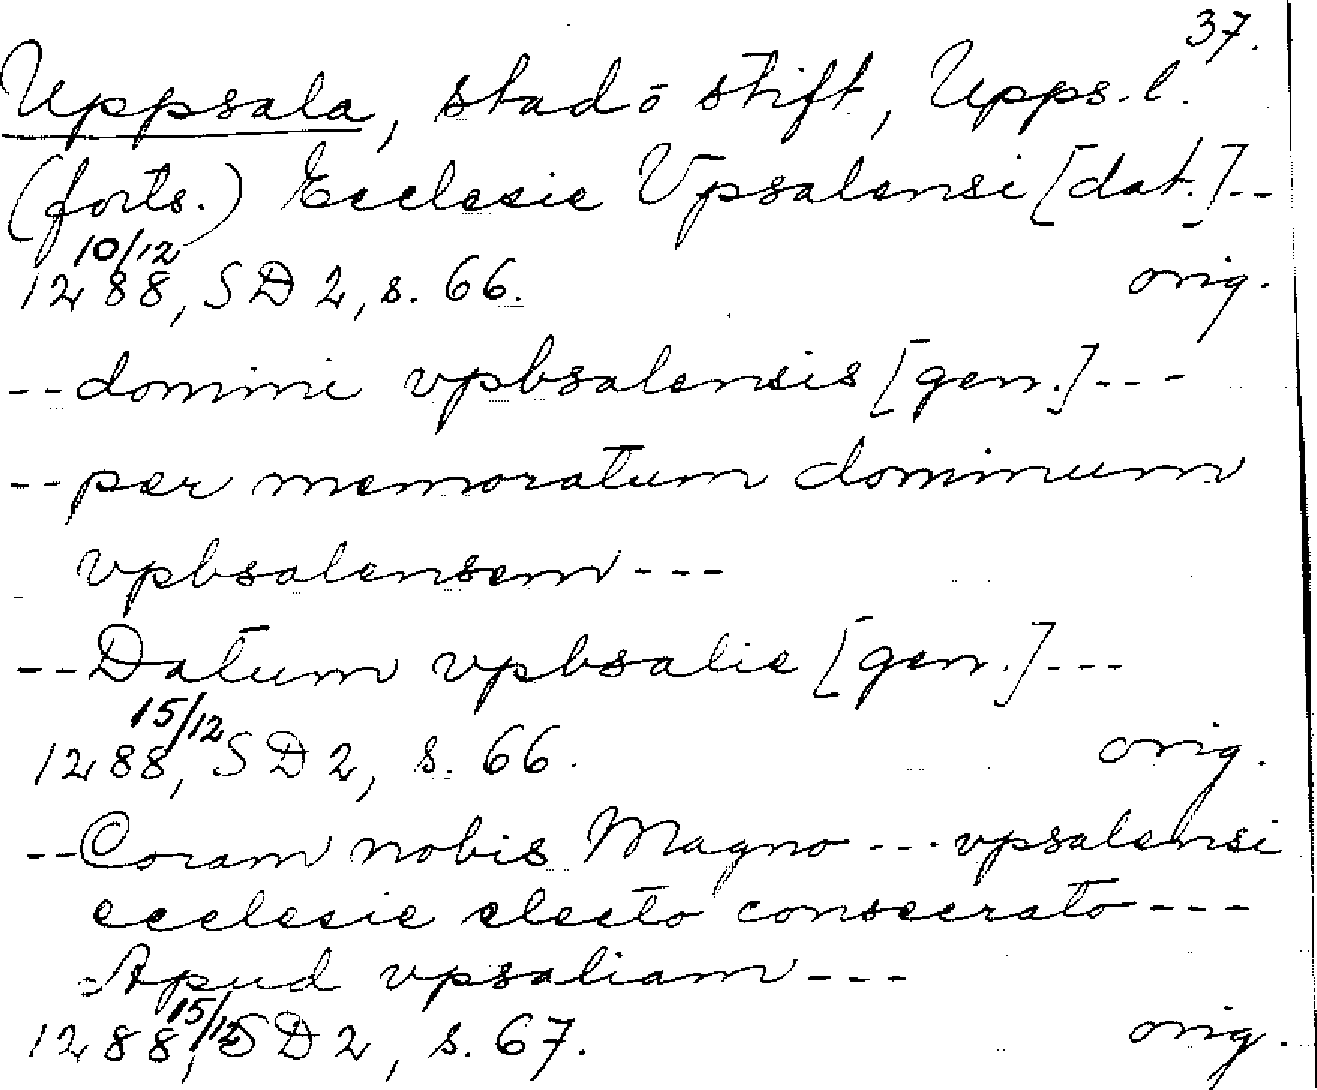 37.
Uppsala, stad o stift, Upps. l.
(forts.) Ecclesie Vpsalensi [dat.]--
10/12
1288, SD 2, s. 66. orig.
--domini vpbsalensis [gen.]---
--per memoratum dominum
vpbsalensem---
--Datum vpbsalie [gen.]---
15/12
1288, SD 2, s. 66. orig.
--Coram nobis Magno --- vpsalensi
ecclesie electo consecrato---
-Apud vpsaliam---
15/12
1288, SD 2, s. 67. orig.